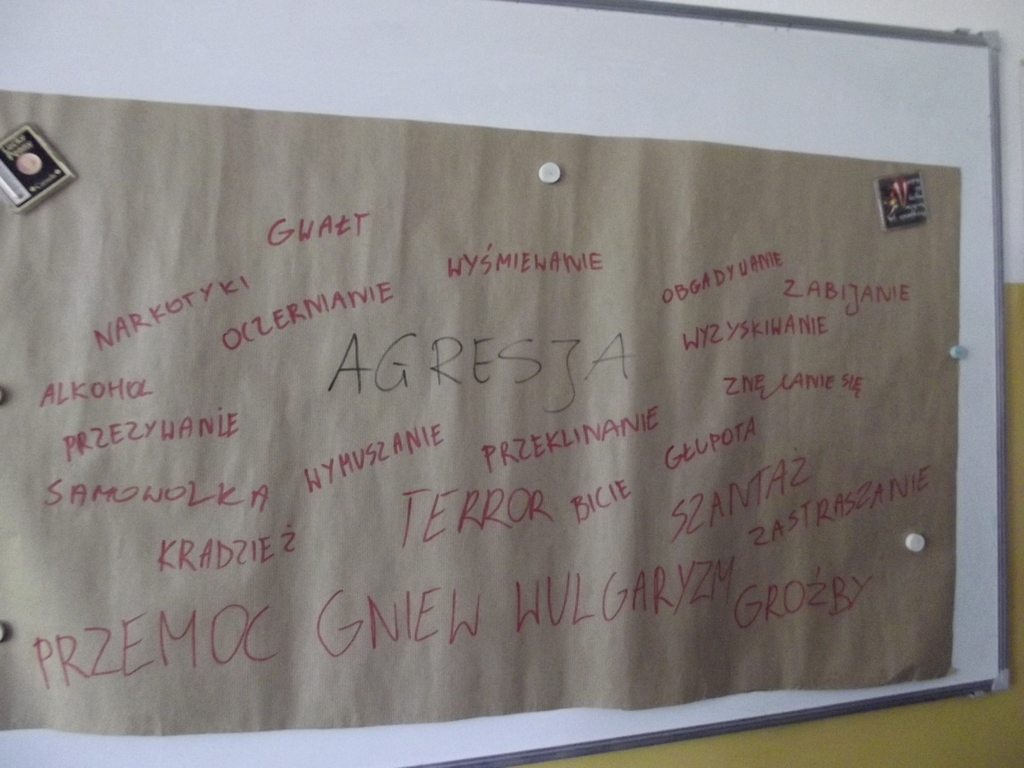 GWAŁT
WYŚMIEWANIE
OBGADYWANIE
NARKOTYKI
OCZERNIANIE
ZABIJANIE
WYZYSKIWANIE
AGRESJA
ALKOHOL
ZNĘCANIE SIĘ
PRZEZYWANIE
WYMUSZANIE
PRZEKLINANIE
GŁUPOTA
SAMOWOLKA
TERROR
BICIE
SZANTAŻ
ZASTRASZANIE
KRADZIEŻ
PRZEMOC GNIEW WULGARYZM
GROŹBY